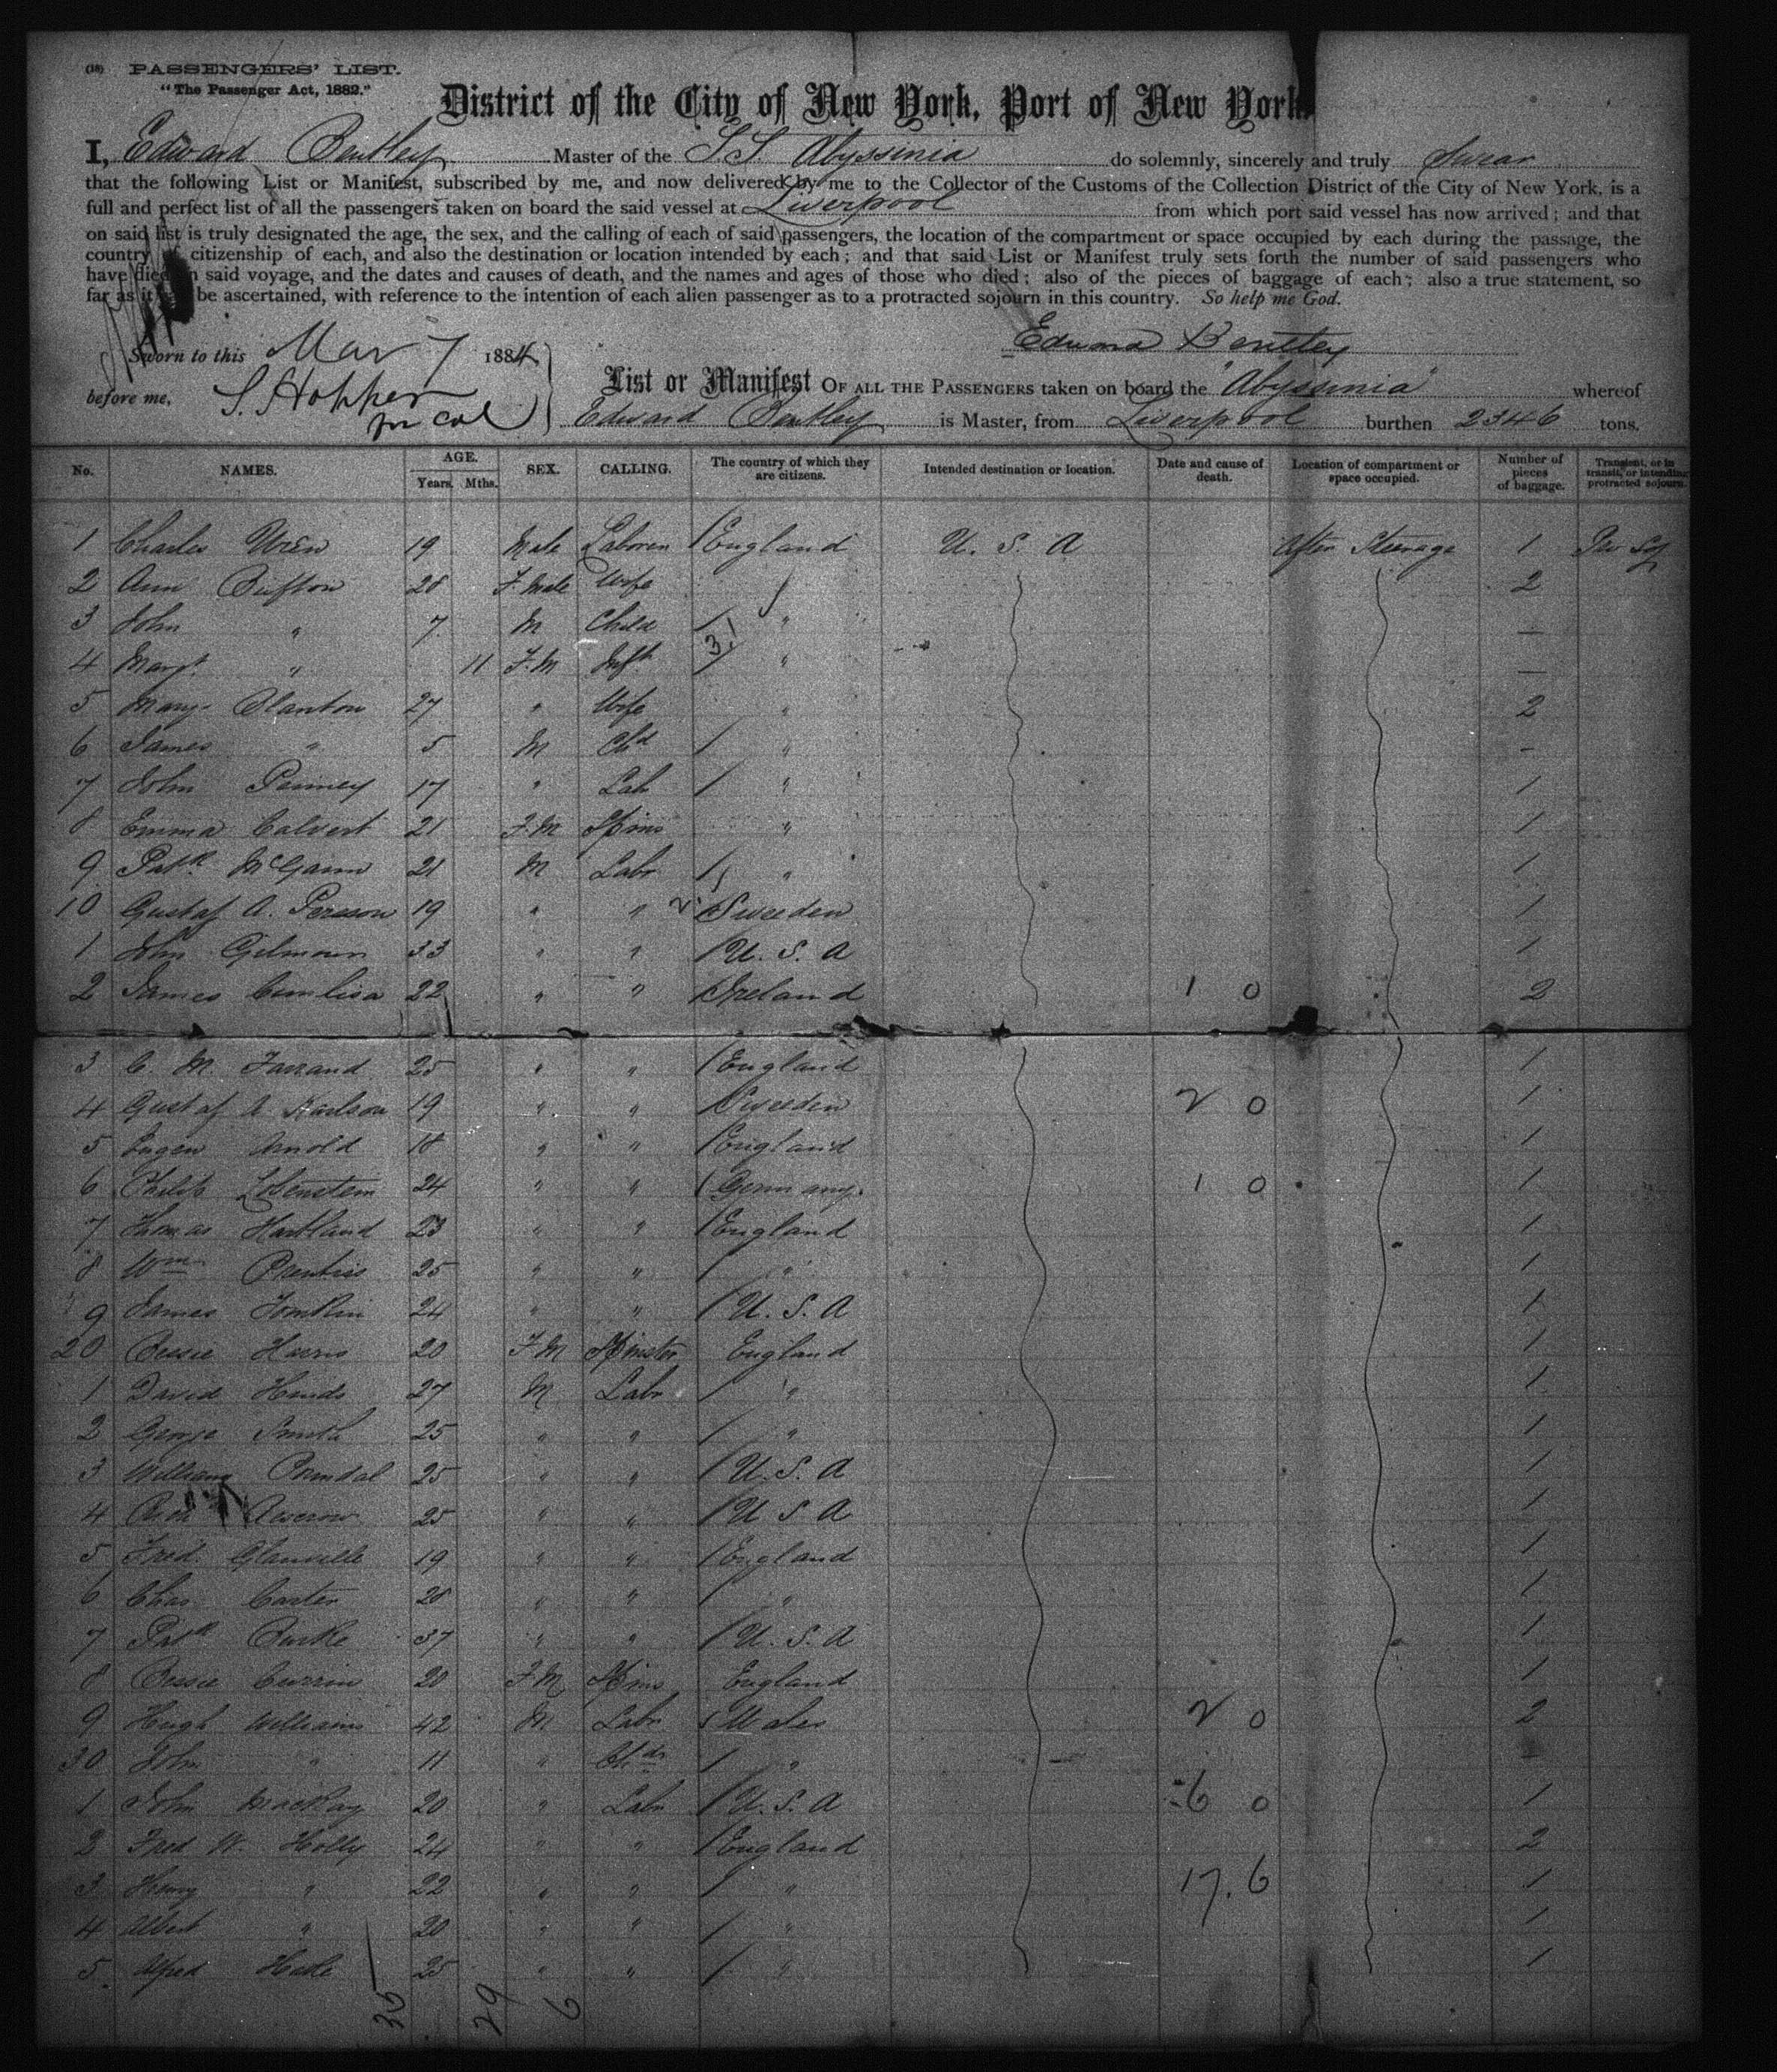 (18) PASSENGERS' LIST.
"The Passenger Act, 1882."
District of the City of New York, Port of New York.
I, Edward Bentley Master of the S.S. Abyssinia do solemnly, sincerely and truly Swear
that the following List or Manifest, subscribed by me, and now delivered by me to the Collector of the Customs of the Collection District of the City of New York, is a
full and perfect list of all the passengers taken on board the said vessel at Liverpool from which port said vessel has now arrived; and that
on said list is truly designated the age, the sex, and the calling of each of said passengers, the location of the compartment or space occupied by each during the passage, the
country citizenship of each, and also the destination or location intended by each; and that said List or Manifest truly sets forth the number of said passengers who
have died said voyage, and the dates and causes of death, and the names and ages of those who died; also of the pieces of baggage of each; also a true statement, so
far as it be ascertained, with reference to the intention of each alien passenger as to a protracted sojourn in this country. So help me God.
Edward Bentley
Sworn to this Mar 7 1884
before me, S. Hopper
for Col
List or Manifest OF ALL THE PASSENGERS taken on board the "Abyssinia" whereof
Edward Bentley is Master, from Liverpool burthen 2346 tons.
No. NAMES. AGE. Years. Mths. SEX. CALLING. The country of which they are citizens. Intended destination or location. Date and cause of death. Location of compartment or space occupied. Number of pieces of baggage. Transient, or in transit, or intending protracted sojourn.
1 Charles Wren 19 Male Laborer England U. S. A After Steerage 1
2 Ann Bufton 28 F. Male Wife 2
3 John " 7 M Child " —
31
4 Margt. " 11 F. M Inft " —
5 Mary Blanton 27 " Wife " 2
6 James " 5 M Chd " -
7 John Pinney 17 " Lab " 1
8 Emma Calvert 21 F. M Spins " 1
9 Patk. McGann 21 M Labr " 1
10 Gustaf A. Persson 19 " " 2 Sweeden 1
1 John Gilmour 33 " " U. S. A 1
2 James 22 " " Ireland 1 0 2
3 C. M. Farrand 25 " " England 1
4 Gustaf A Karlson 19 " " Sweeden 2 0 1
5 Eugen Arnold 18 " " England 1
6 Philip 24 " " Germany. 1 0 1
7 Thomas Hartland 23 " " England 1
8 Wm Prentis 25 " " " 1
9 James Tomkin 24 " " U. S. A 1
20 Bessie Harris 20 F M Spinster England 1
1 David Hands 27 M Labr " 1
2 George Smith 25 " " " 1
3 William 25 " " U. S. A 1
4 25 " " U S A 1
5 Fred. Glanville 19 " " England 1
6 Chas Carter 28 " " " 1
7 Patk Burke 37 " " U. S. A 1
8 Bessie 20 F. M Spins England 1
9 Hugh Williams 42 M Labr Wales 2 0 2
30 John " 11 " " —
1 John MacKay 20 " Labr U. S. A 6 0 1
2 Fred W. Holly 24 " " England 2
3 Henry " 22 " " " 17. 6 1
4 Albert " 20 " " " 1
5 Alfred 25 " " " 1
35 29 6